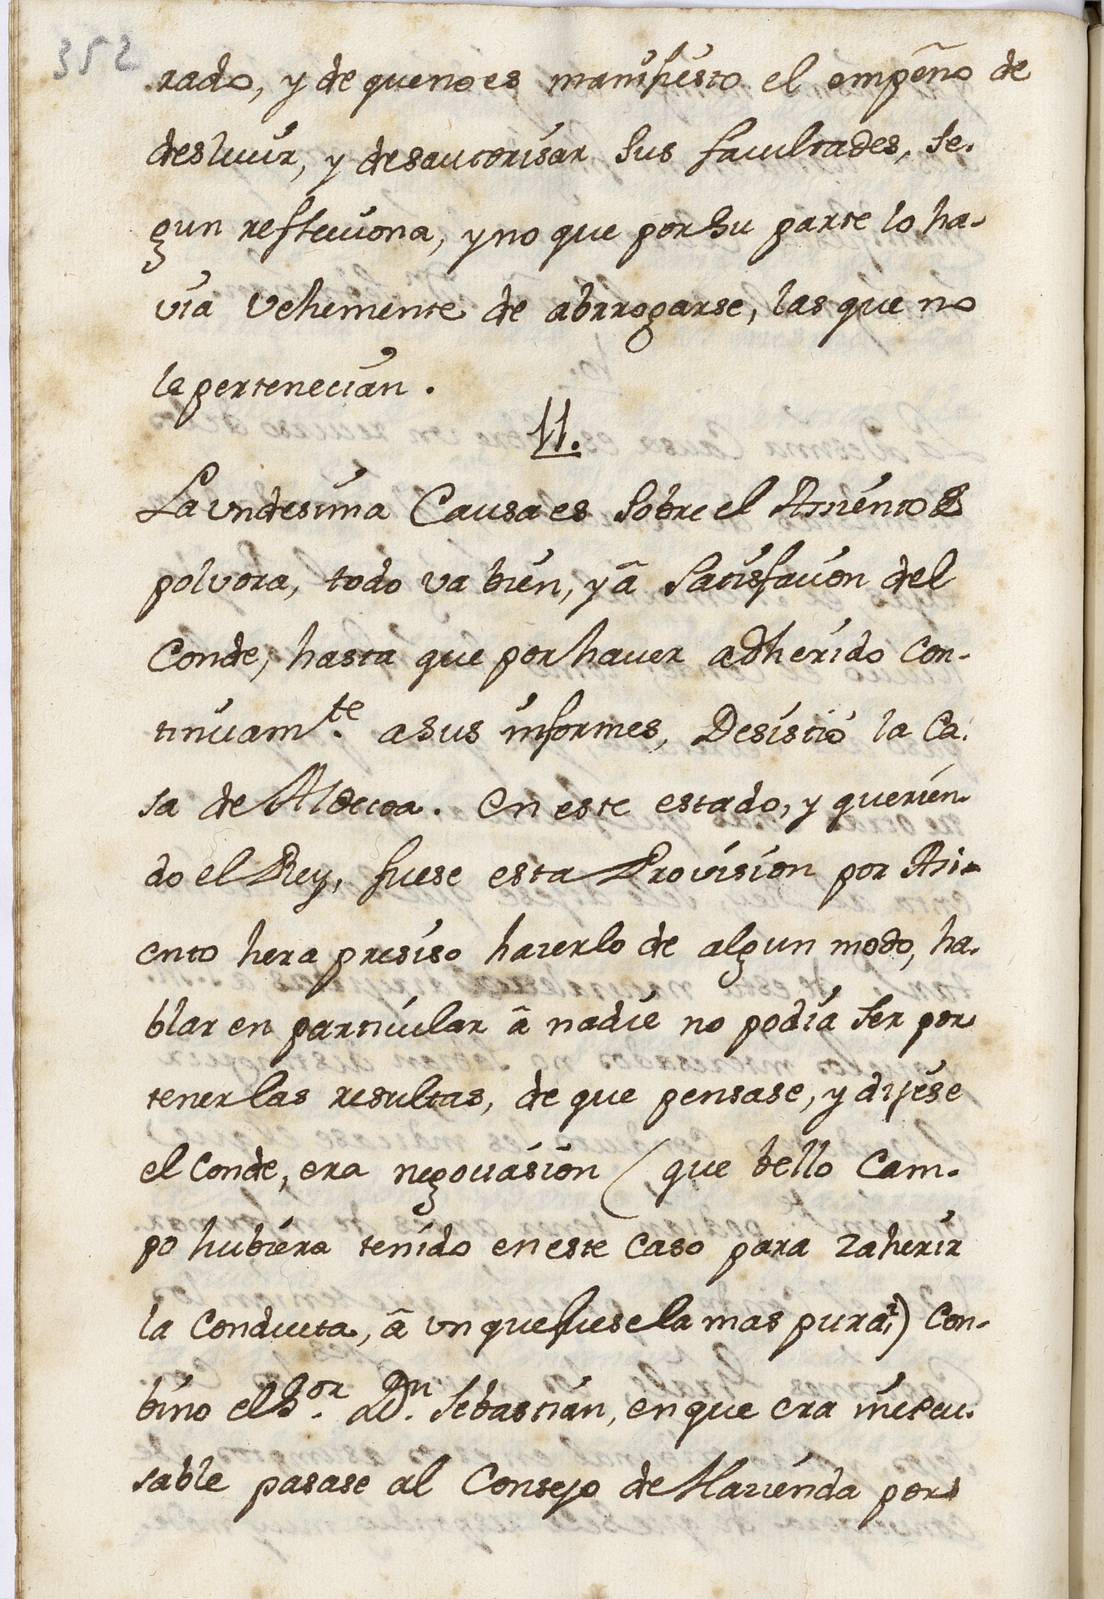 352
rado, y de que no es manifiesto el empeño de
desluzir, y desautorisar sus facultades, se-
gun reflecciona, y no que por su parte lo ha-
via vehemente de abrrogarse, las que no
le pertenecian.
11.
La undesima Causa es sobre el Asiento de
polvora, todo va bien, y â satisfacion del
Conde, hasta que por haver adherido con-
tinuam.te a sus informes, Desistió la Ca-
sa de Aldecoa. En este estado, y querien-
do el Rey, fuese esta Provision por Asi-
ento hera presiso hazerlo de algun modo, ha-
blar en particular â nadie no podia ser por
tener las resultas, de que pensase, y dijese
el Conde, era negociasion (que bello Cam-
po hubiera tenido en este caso para zaherir
la conducta, â un que fuese la mas pura!) Con-
bino el S.or D.n Sebastian, en que era inescu-
sable pasase al Consejo de Hazienda por